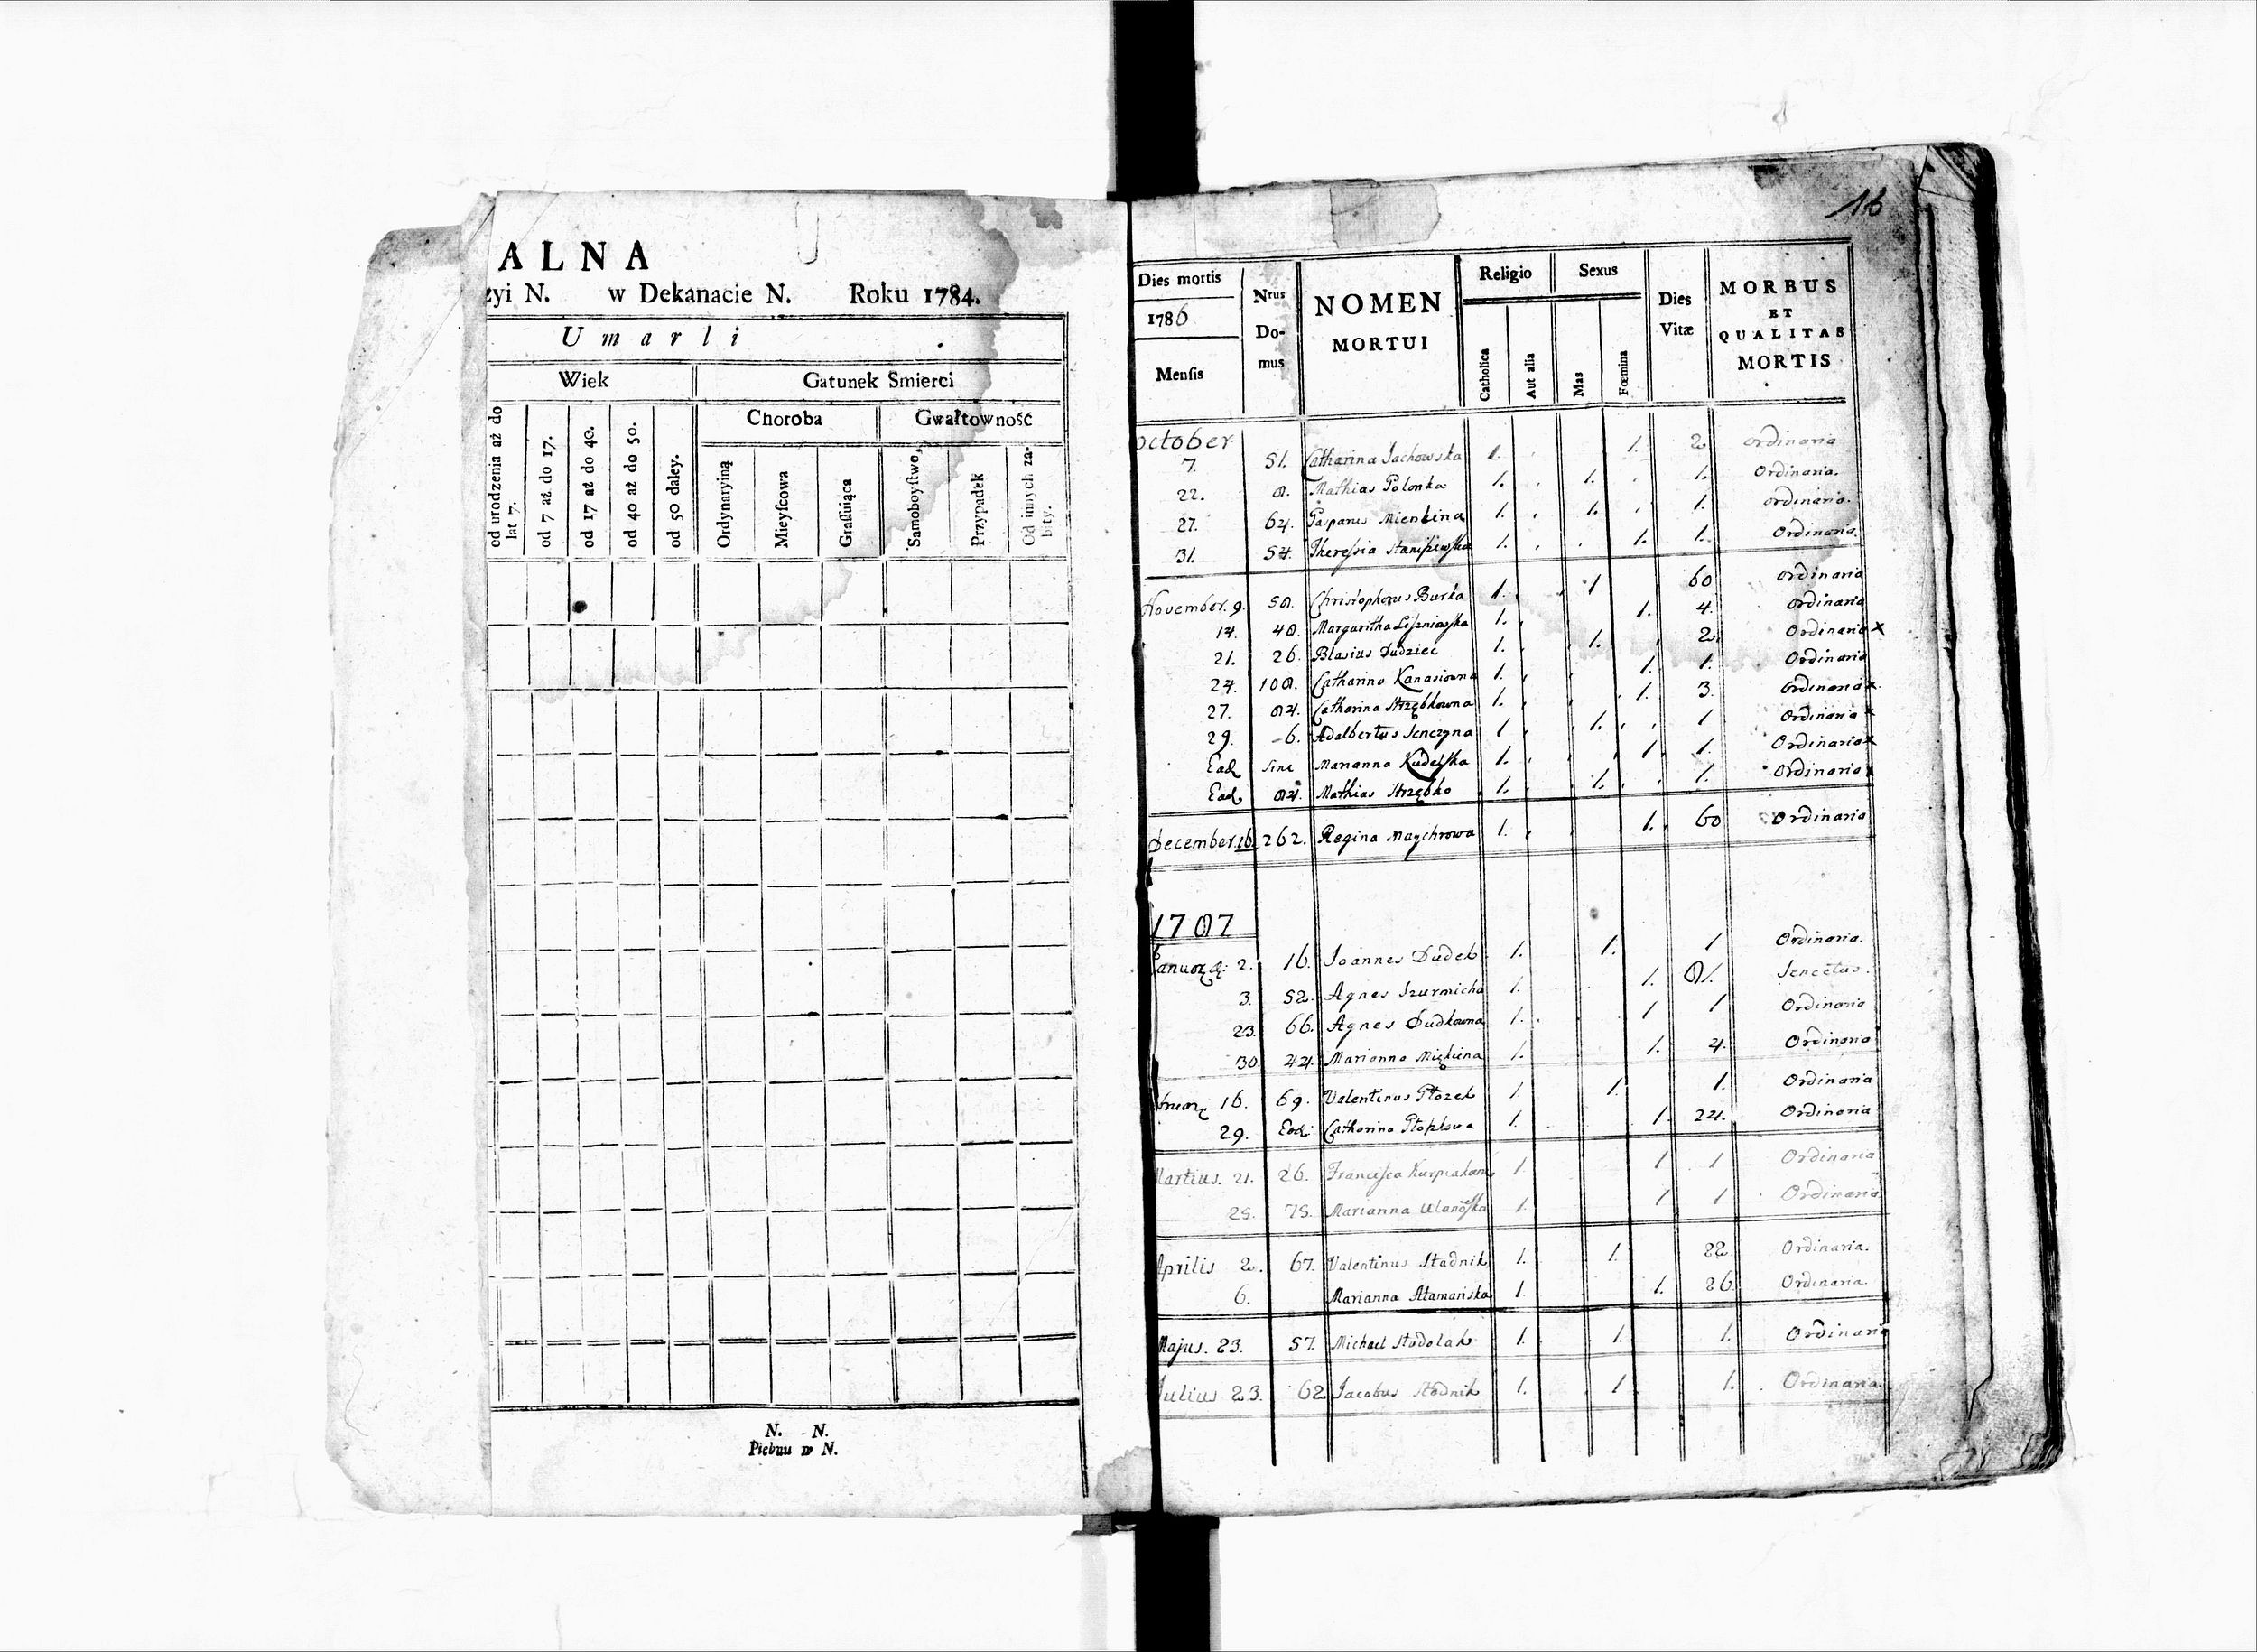 ALNA
zyi N. w Dekanacie N. Roku 1784.
Umarli
Wiek Gatunek Smierci
Choroba Gwałtowność
od urodzenia aż do lat 7.
od 7 aż do 17.
od 17 aż do 40.
od 40 aż do 50.
od 50 daley.
Ordynaryiną
Mieyſcowa
Graſſuiąca
Samoboyſtwo,
Przypadek
Od innych zabity.
N. N.
Pleban w N.
16
Dies mortis 1786 Menſis
Nrus Domus
NOMEN MORTUI
Religio Catholica Aut alia
Sexus Mas Fœmina
Dies Vitæ
MORBUS ET QUALITAS MORTIS
October
7. 51. Catharina Jachowska 1. 1. 2 Ordinaria
22. 8. Mathias Polonka 1. 1. 1. Ordinaria.
27. 64. Gasparus Mienkina 1. 1. 1. Ordinaria.
31. 54. Theresia 1. 1. 1. Ordinaria.
November. 9. 58. Christophorus Burka 1. 1 60 Ordinaria
14. 48. Margaritha 1. 1. 4. Ordinaria
21. 26. Blasius Dudziec 1. 1. 2. Ordinaria x
24. 108. Catharina Kanasiowna 1. 1. 1. Ordinaria
27. 84. Catharina Strzębkowna 1. 1. 3. Ordinaria x
29. 6. Adalbertus Jenczyna 1 1. 1 Ordinaria x
Ead sine Marianna Kudelska 1. 1. 1. Ordinaria x
Ead 84. Mathias Strzębko 1. 1. 1. Ordinaria
December. 16. 262. Regina Maychrowa 1. 1. 60 Ordinaria
1787
2. 16. Joannes Dudek 1. 1. 1 Ordinaria.
3. 52. Agnes Szurmicha 1. 1. 81. Senectus.
23. 66. Agnes Dudkowna 1. 1 1 Ordinaria
30. 44. Marianna Miękina 1. 1. 4. Ordinaria
16. 69. Valentinus Ptazek 1. 1. 1. Ordinaria
29. Ead. Catharina 1. 1. 24. Ordinaria
Martius. 21. 26. Francisca 1. 1 1 Ordinaria
25. 75. Marianna 1. 1 1 Ordinaria
Aprilis 2. 67. Valentinus Stadnik 1. 1. 22 Ordinaria.
6. Marianna Atamańska 1. 1. 26 Ordinaria.
Majus. 23. 57. Michael Stodolak 1. 1. 1. Ordinaria
Julius 23. 62 Jacobus Stodnik 1. 1. 1. Ordinaria.